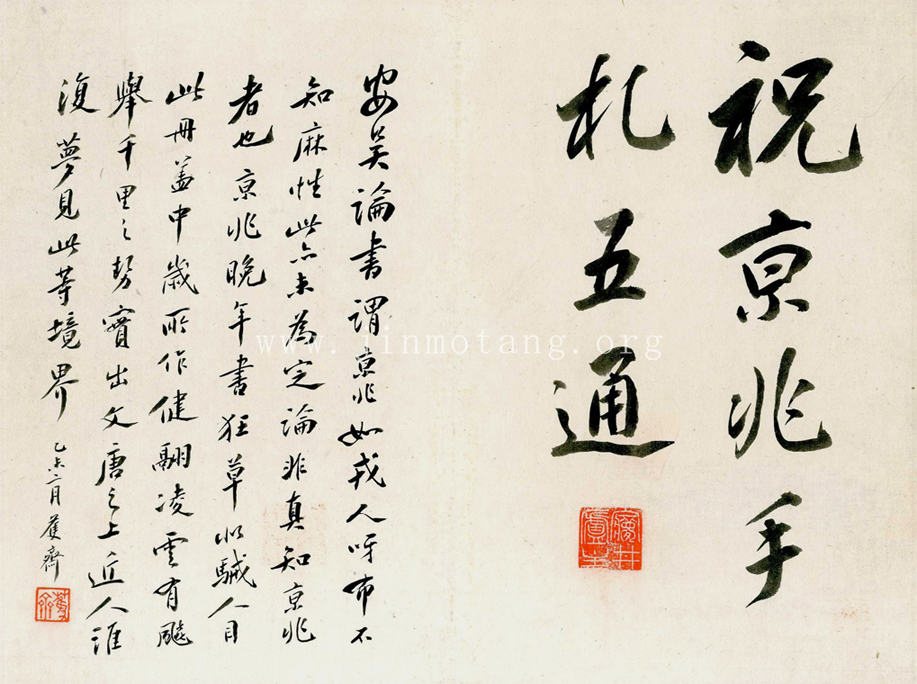 祝京兆手
札五通
安吴論書謂京兆如戎人呀布不
知麻性此亦未為定論非真知京兆
者也京兆晚年書狂草以駴人目
此冊蓋中歲所作健翮凌雲有飈
舉千里之勢實出文唐之上近人誰
復夢見此等境界 乙未六月蕉齋
www.jinmotang.org